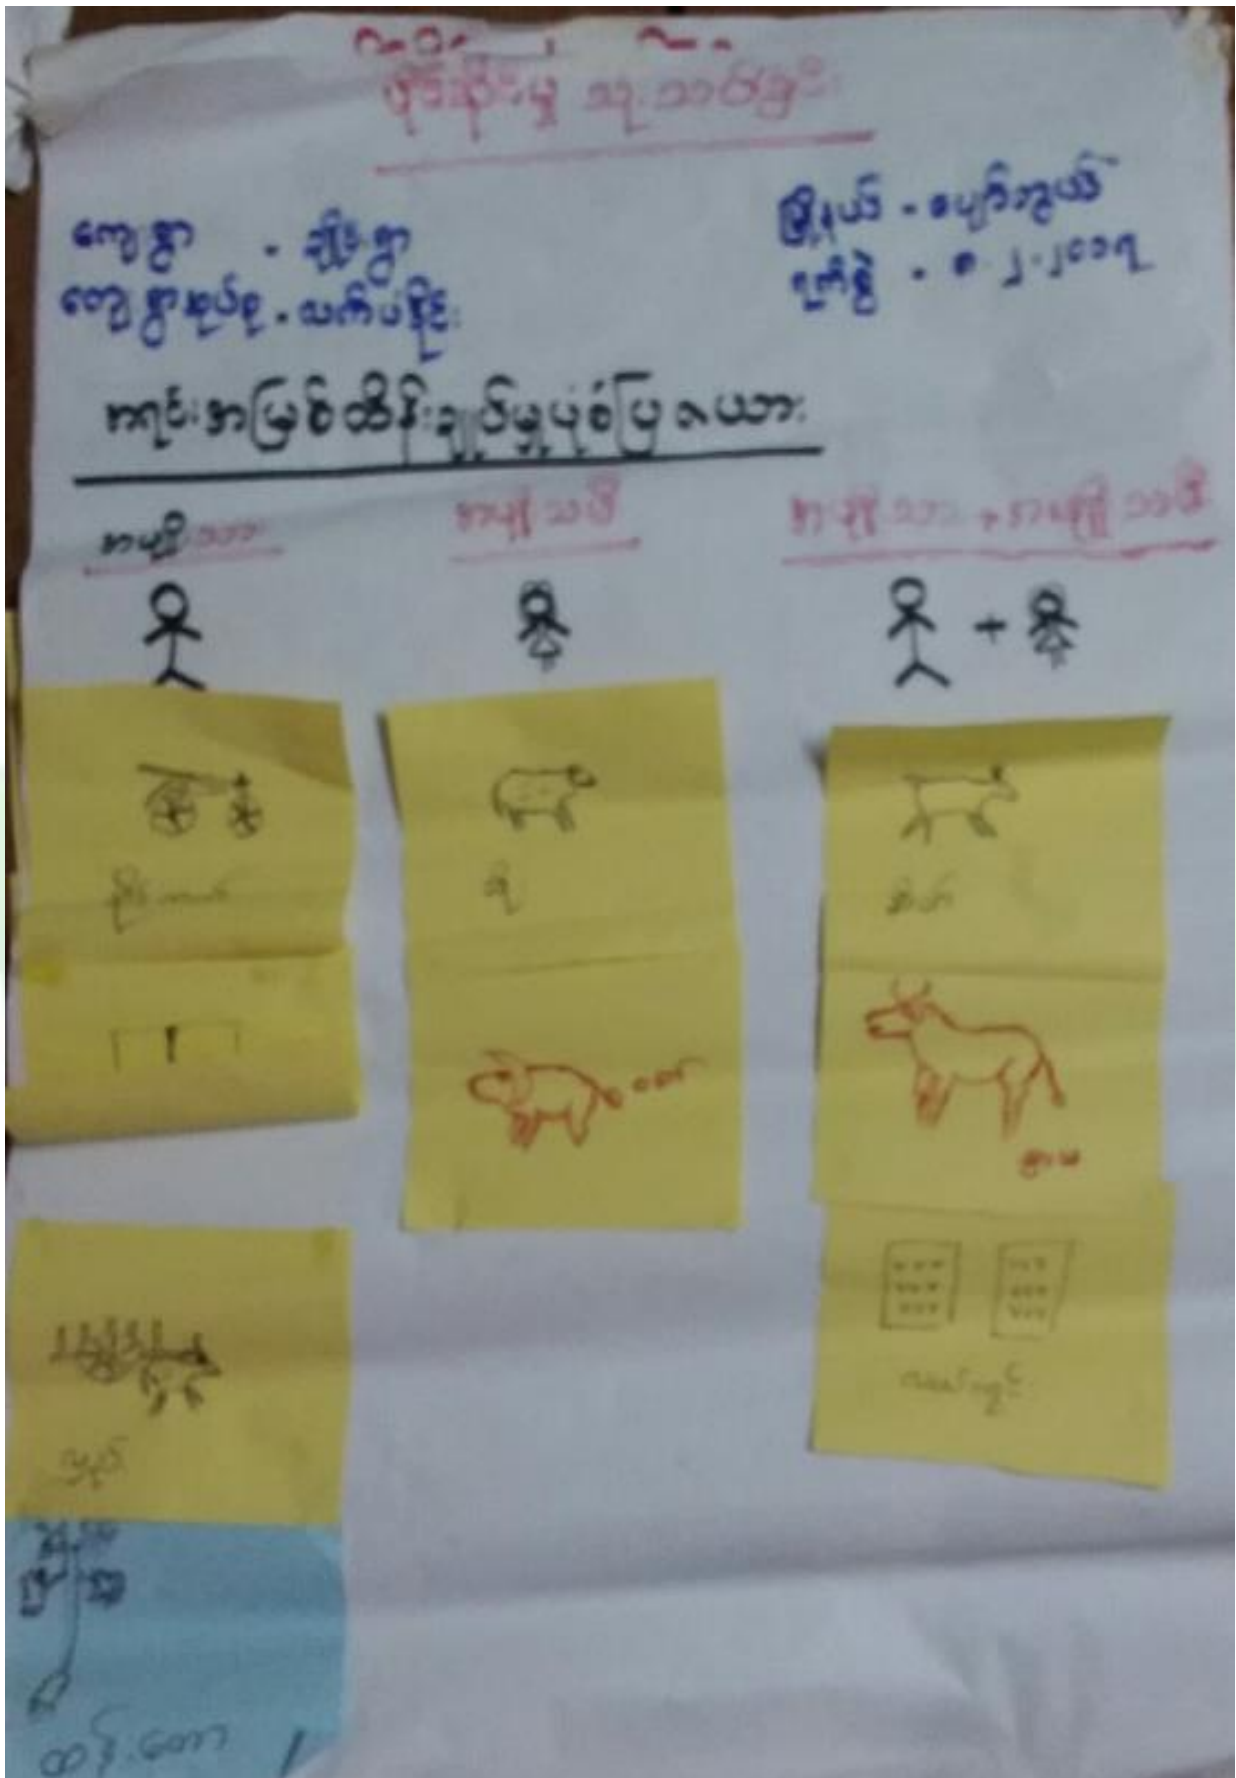 ပိုင်ဆိုင်မှု သုံးသပ်ခြင်း
ကျေးရွာ - ချိုင့်ရွာ
ကျေးရွာအုပ်စု - လက်ပံခိုင်
မြို့နယ် - ပျော်ဘွယ်
ရက်စွဲ - ၈.၂.၂၀၁၇
အရင်းအမြစ်ထိန်းချုပ်မှုပုံစံပြဇယား
အမျိုးသား
အမျိုးသမီး
အမျိုးသား + အမျိုးသမီး
+
သိုး
ဆိတ်
ဝက်
နွားမ
လယ်ကွင်း
လှည်း
ထွန်တော